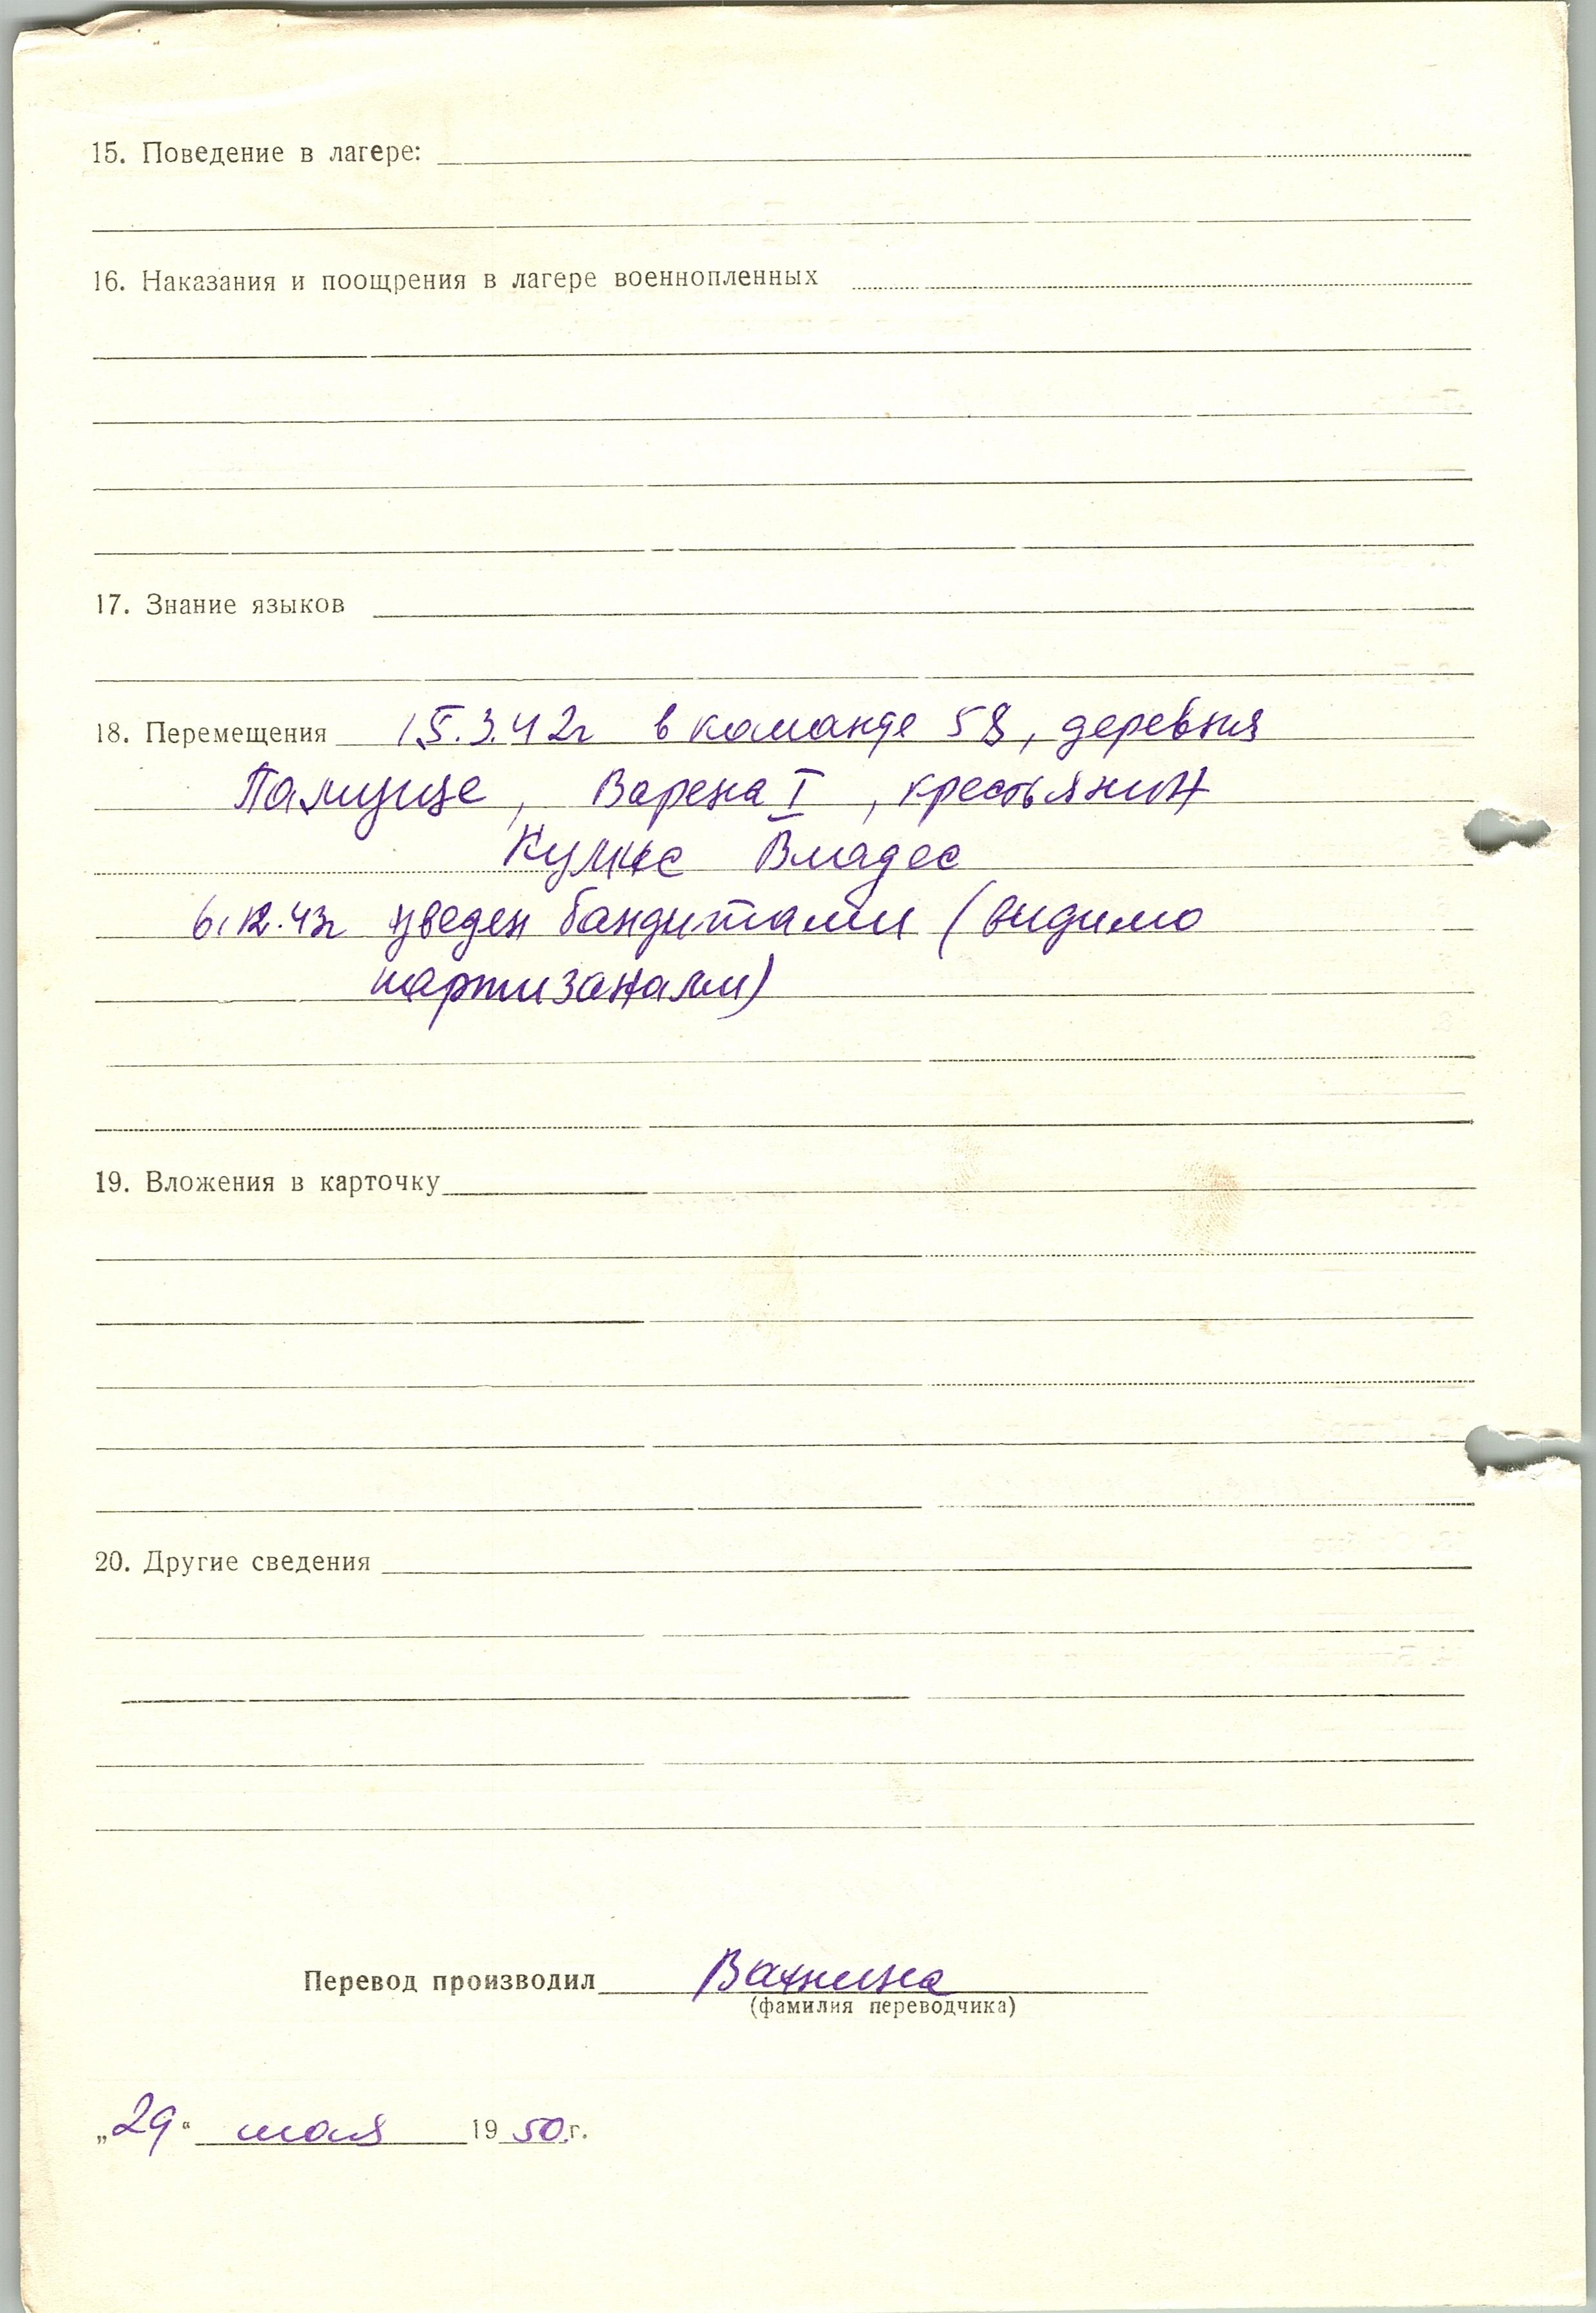 15. Поведение в лагере:
16. Наказания и поощрения в лагере военнопленных
17. Знание языков
18. Перемещения 15.3.42г в команде 58, деревня
Памуице, Варена I, крестьянин
Владес
6.12.43г уведен бандитами (видимо
партизанами)
19. Вложения в карточку
20. Другие сведения
Перевод производил
(фамилия переводчика)
„29“ мая 1950г.